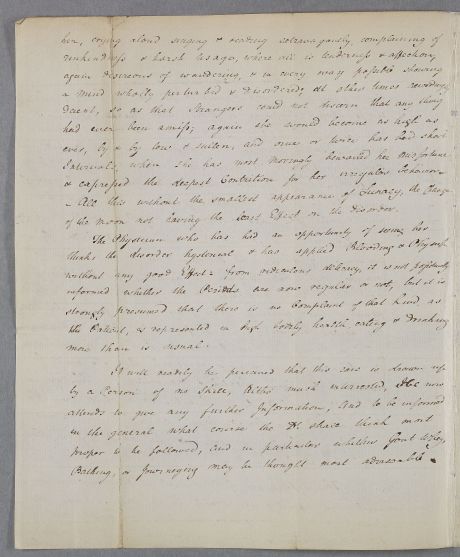 her, crying aloud singing & reading extravagantly, complaining of
unkindness & harsh usage, where all is tenderness & affection,
again desireous of wandering, & in every way possible shewing
a mind wholly perturbed & disordered; At other times exceeding
decent, so as that Strangers could not discern that any thing
had ever been amiss; again she would become as high as
ever, by & by low & sullen, and once or twice has had short
Intervals, when she has most movingly bewailed her misfortune
& expressed the deepest Contrition for her irregular behaviour
- All this without the smallest appearance of Lunacy, the Change
of the moon not having the least Effect on the disorder.
The Physician who has had an opportunity of seeing her
thinks the disorder hysterical & has applied Bleeding & Physick
without any good Effect: from delicacy, it is not perfectly
informed whether the Periods are now regular or not, but it is
strongly presumed that there is no Complaint of that kind as
the Patient, is represented in high bodily health, eating & drinking
more than is usual.
It will readily be perceived that this case is drawn up
by a Person of no Skill, tho much interested, He now
attends to give any further Information, And to be informed
in the general what course the Dr. shall think most
proper to be followed, And in particular whether Goat Whey,
Bathing, or Journeying may be thought most adviseable.